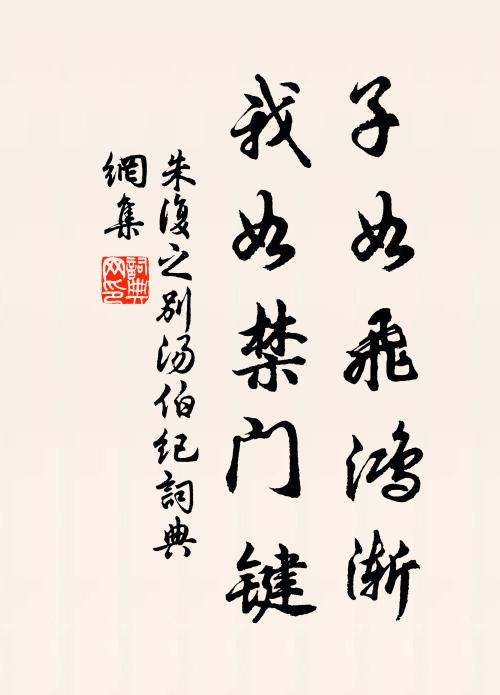 子如飞鸿渐
我如禁门键
朱復之别汤伯纪詞典
網集
詞典
网印